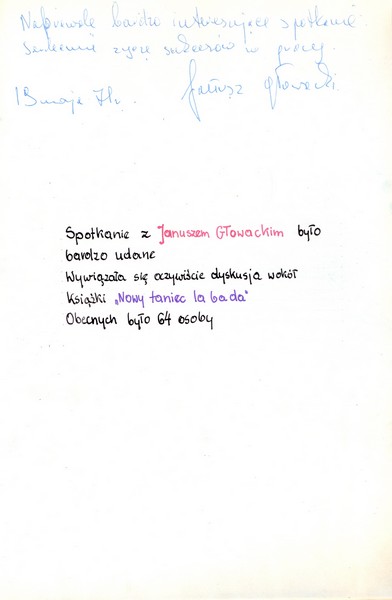 Naprawdę bardzo interesujące spotkanie
Serdecznie życzę sukcesów w pracy.
Janusz Głowacki
13 maja 71r.
Spotkanie z Januszem Głowackim było
bardzo udane
Wywiązała się oczywiście dyskusja wokół
Książki „Nowy taniec la ba da"
Obecnych było 64 osoby